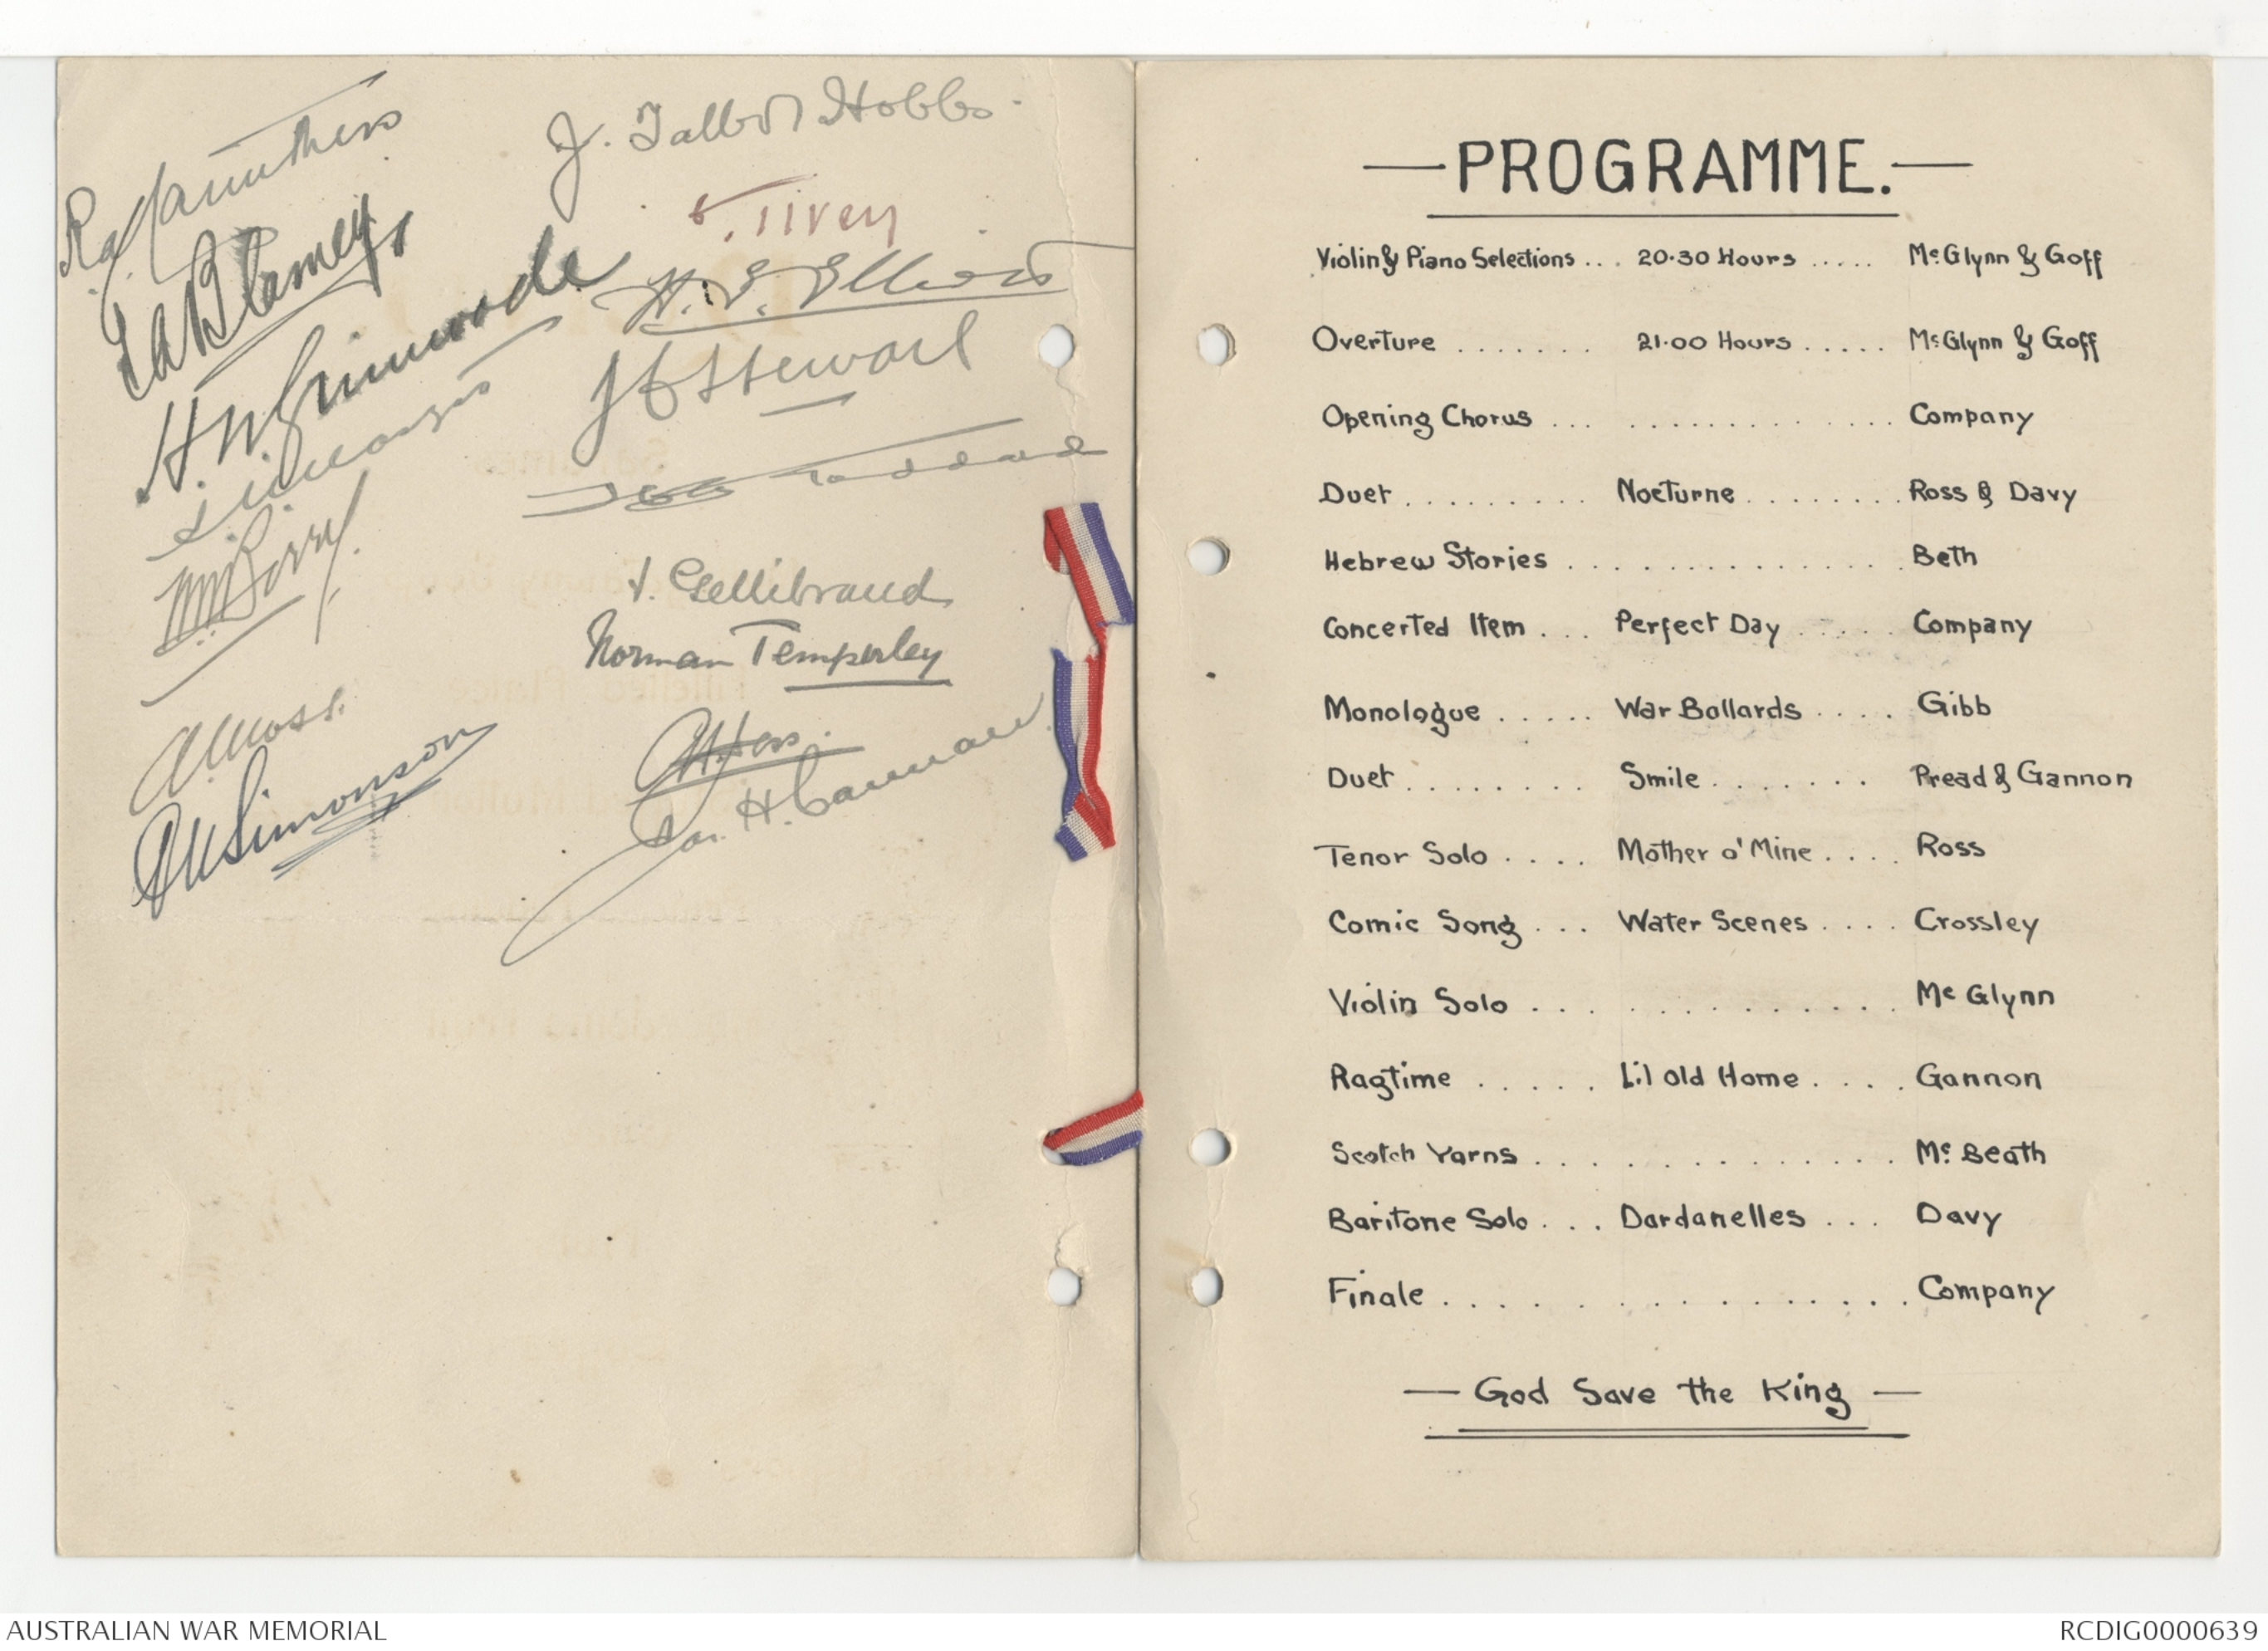 R. A. Carruthers
J. Talbot Hobbs.
E. Tivey
T A Blamey
H. E. Elliott
H. W. Grimwade
J C Stewart
J. Gellibrand
Norman Temperley
Jas. H. Cannan.
A. Moss.
— PROGRAMME. —
Violin & Piano Selections ... 20.30 Hours ..... Mc Glynn & Goff
Overture ....... 21.00 Hours ..... Mc Glynn & Goff
Opening Chorus ... ............ Company
Duet ......... Nocturne ........ Ross & Davy
Hebrew Stories ............... Beth
Concerted Item ... Perfect Day ..... Company
Monologue ..... War Ballards .... Gibb
Duet ........ Smile ....... Pread & Gannon
Tenor Solo .... Mother o' Mine .... Ross
Comic Song ... Water Scenes .... Crossley
Violin Solo ............. Mc Glynn
Ragtime ..... Lil old Home .... Gannon
Scotch Yarns .............. Mc Beath
Baritone Solo ... Dardanelles ... Davy
Finale ................ Company
— God Save the King —
AUSTRALIAN WAR MEMORIAL
RCDIG0000639